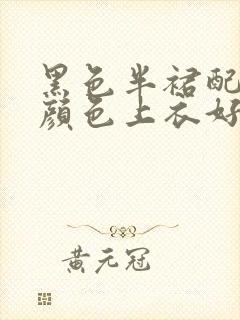 黑色半裙配
颜色上衣好
黄元冠